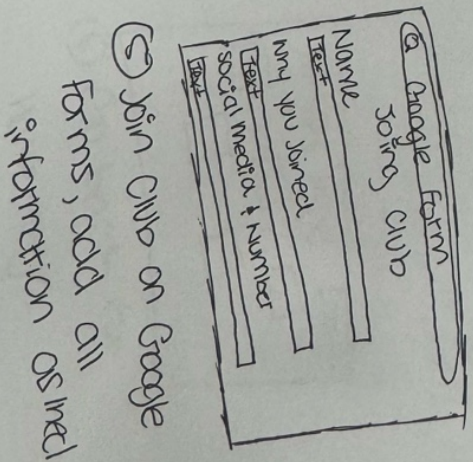 Google Form
Joing Club
Name
Text
Why you Joined
Text
Social media & Number
Text
⑤ Join Club on Google
forms, add all
information asked